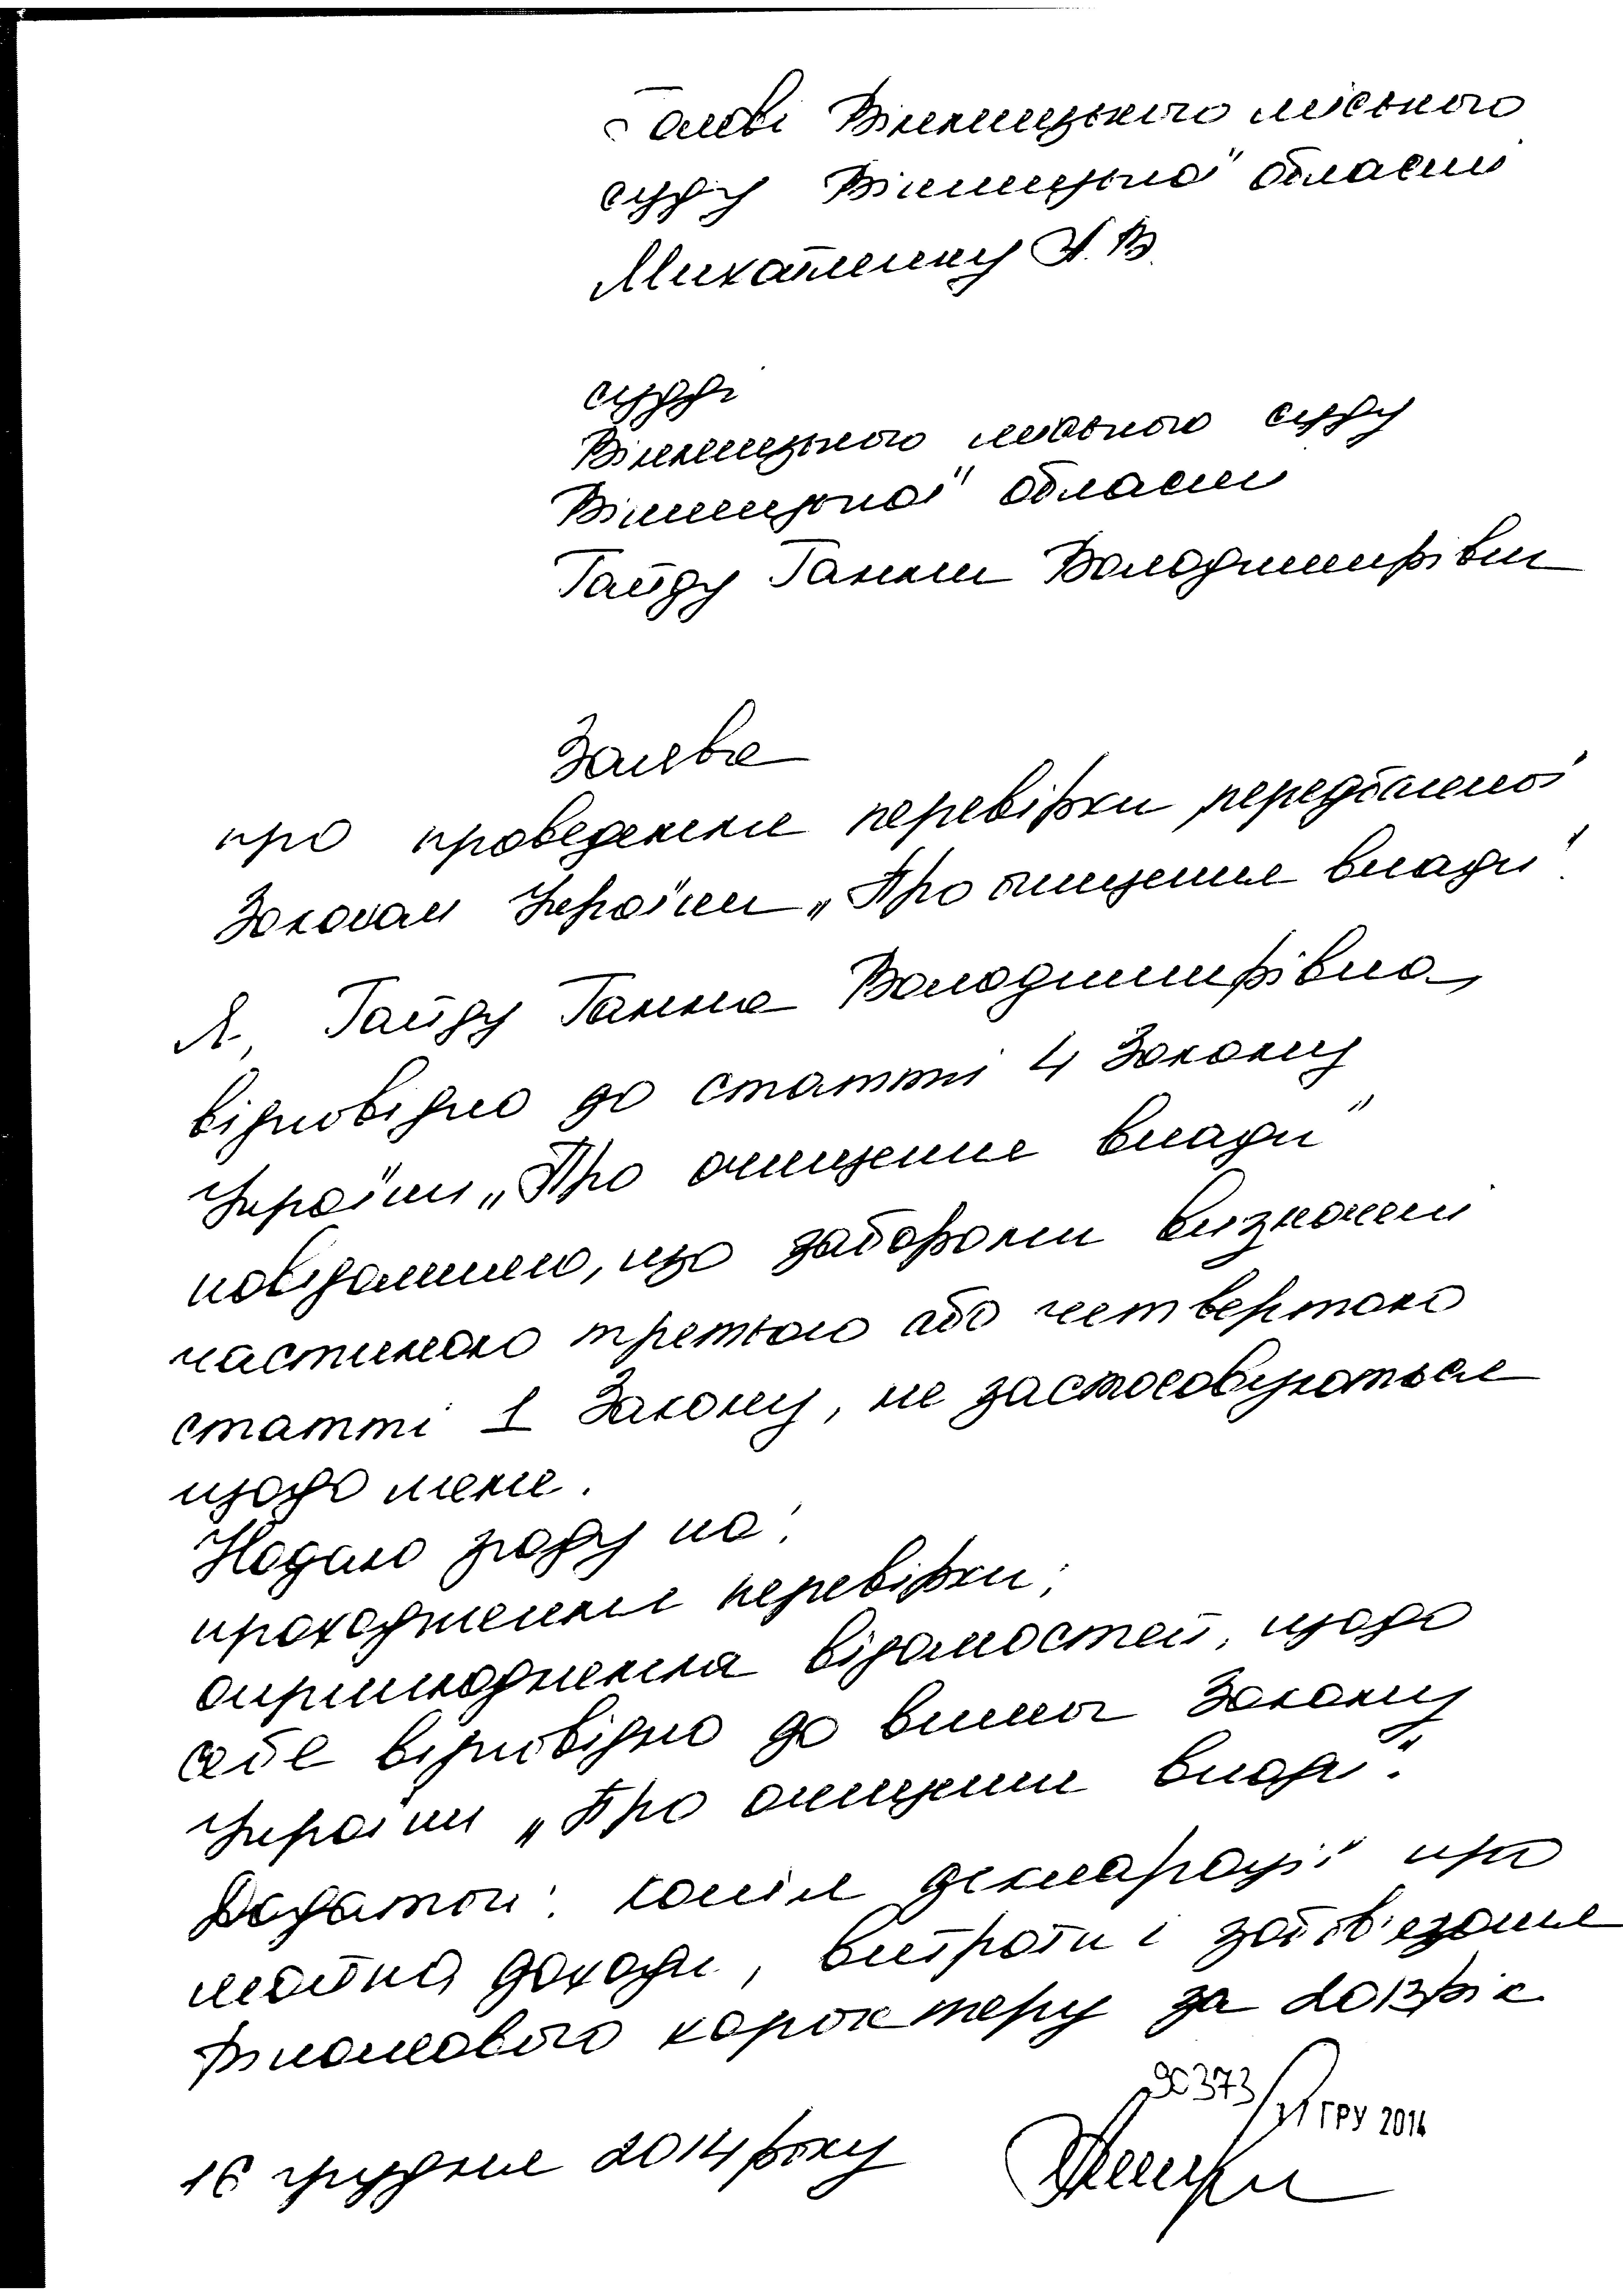 Голові Вінницького міського
суду Вінницької області
Михайленку А.В.
судді
Вінницького міського суду
Вінницької області
Гайду Ганни Володимирівни
Заява
про проведення перевірки, передбаченої
Законом України „Про очищення влади".
Я, Гайду Ганна Володимирівна,
відповідно до статті 4 Закону
України „Про очищення влади"
повідомляю, що заборони визначені
частиною третьою або четвертою
статті 1 Закону, не застосовуються
щодо мене.
Надаю згоду на:
проходження перевірки;
оприлюднення відомостей, щодо
себе відповідно до вимог Закону
України „Про очищення влади".
Додатки: копія декларації про
майно, доходи, витрати і зобов'язання
фінансового характеру за 2013 рік
90373/31 ГРУ 2014
16 грудня 2014 року